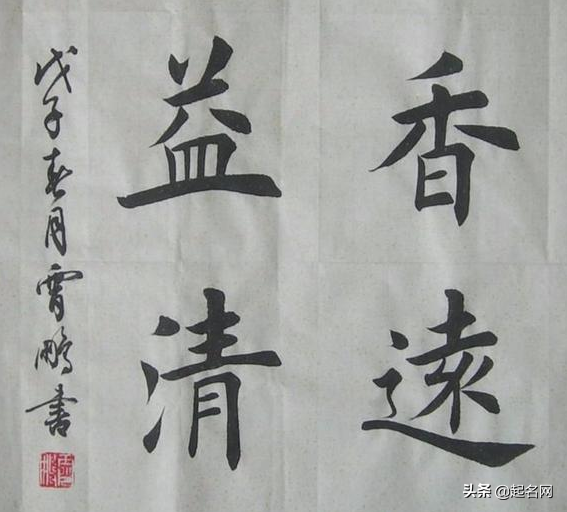 香遠
益清
戊子春月霄鵬书
头条 @起名网